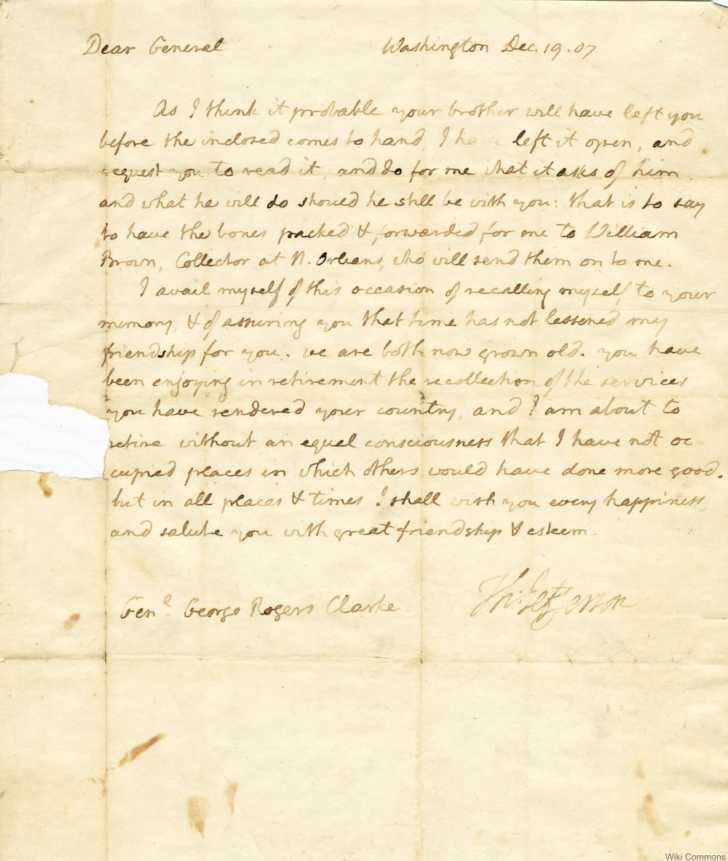 Dear General Washington Dec. 19. 07
As I think it probable your brother will have left you
before the inclosed comes to hand, I have left it open, and
request you to read it, and do for me what it asks of him.
and what he will do should he still be with you: that is to say
to have the bones packed & forwarded for me to William
Brown, Collector at N. Orleans, who will send them on to me.
I avail myself of this occasion of recalling myself to your
memory, & of assuring you that time has not lessened my
friendship for you. we are both now grown old. you have
been enjoying in retirement the recollection of the services
you have rendered your country, and I am about to
retire without an equal consciousness that I have not oc-
cupied places in which others would have done more good.
but in all places & times I shall wish you every happiness,
and salute you with great friendship & esteem.
Th: Jefferson
Genl. George Rogers Clarke
Wiki Commons